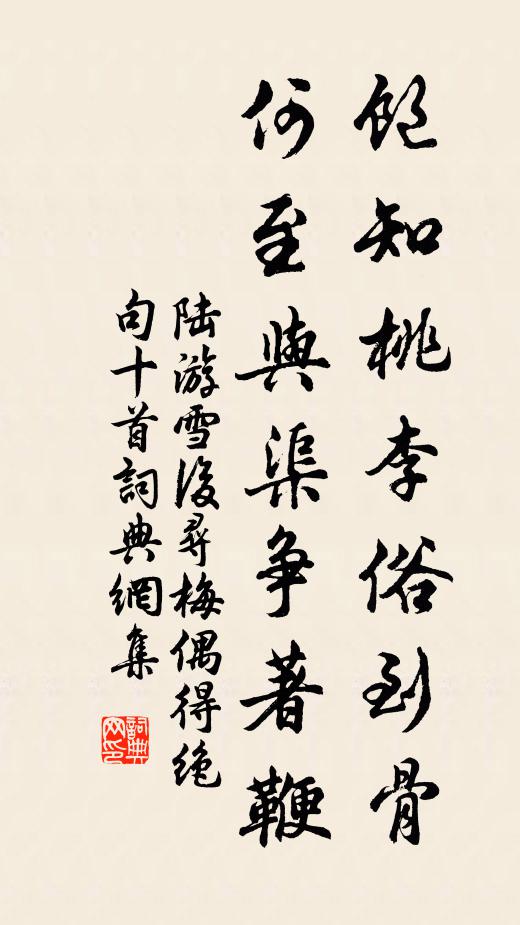 飽知桃李俗到骨
何至與渠争著鞭
陆游雪後尋梅偶得绝
句十首詞典網集
詞典
网印